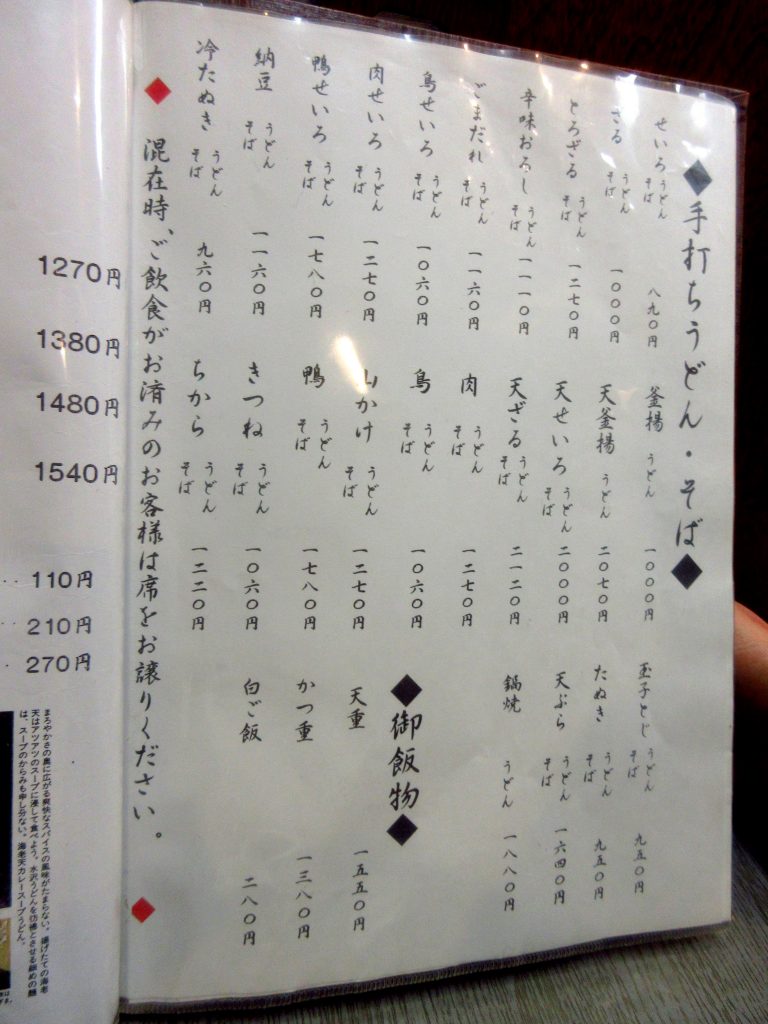 ◆手打ちうどん・そば◆
せいろ うどん そば 八九〇円
ざる うどん そば 一〇〇〇円
とろざる うどん そば 一二七〇円
辛味おろし うどん そば 一一一〇円
ごまだれ うどん そば 一一六〇円
鳥せいろ うどん そば 一〇六〇円
肉せいろ うどん そば 一二七〇円
鴨せいろ うどん そば 一七八〇円
納豆 うどん そば 一一六〇円
冷たぬき うどん そば 九六〇円
釜揚 うどん 一〇〇〇円
天釜揚 うどん 二〇七〇円
天せいろ うどん そば 二〇〇〇円
天ざる うどん そば 二一二〇円
肉 うどん そば 一二七〇円
鳥 うどん そば 一〇六〇円
山かけ うどん そば 一二七〇円
鴨 うどん そば 一七八〇円
きつね うどん そば 一〇六〇円
ちから うどん そば 一二二〇円
玉子とじ うどん そば 九五〇円
たぬき うどん そば 九五〇円
天ぷら うどん そば 一六四〇円
鍋焼 うどん 一八八〇円
◆御飯物◆
天重 一五五〇円
かつ重 一三八〇円
白ご飯 二八〇円
◆混在時、ご飲食がお済みのお客様は席をお譲りください。◆
1270円
1380円
1480円
1540円
110円
210円
270円
まろやかさの奥に広がる爽快なスパイスの風味がたまらない。揚げたての海老
天はアツアツのスープに浸して食べよう。水沢うどんを彷彿とさせる細めの麺
は、スープのからみも申し分ない。海老天カレースープうどん。